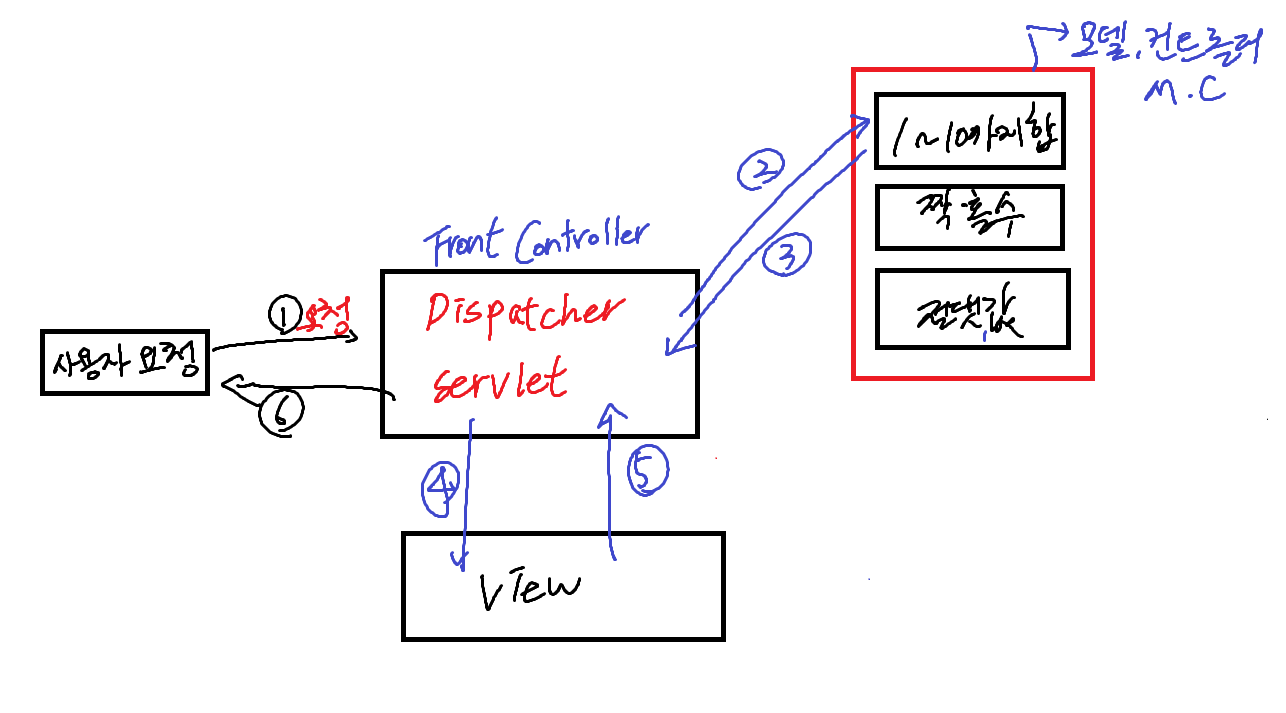 모델, 컨트롤러
M.C
1~10까지합
짝·홀수
절댓값
②
③
Front Controller
Dispatcher
servlet
① 요청
사용자 요청
⑥
④
⑤
View